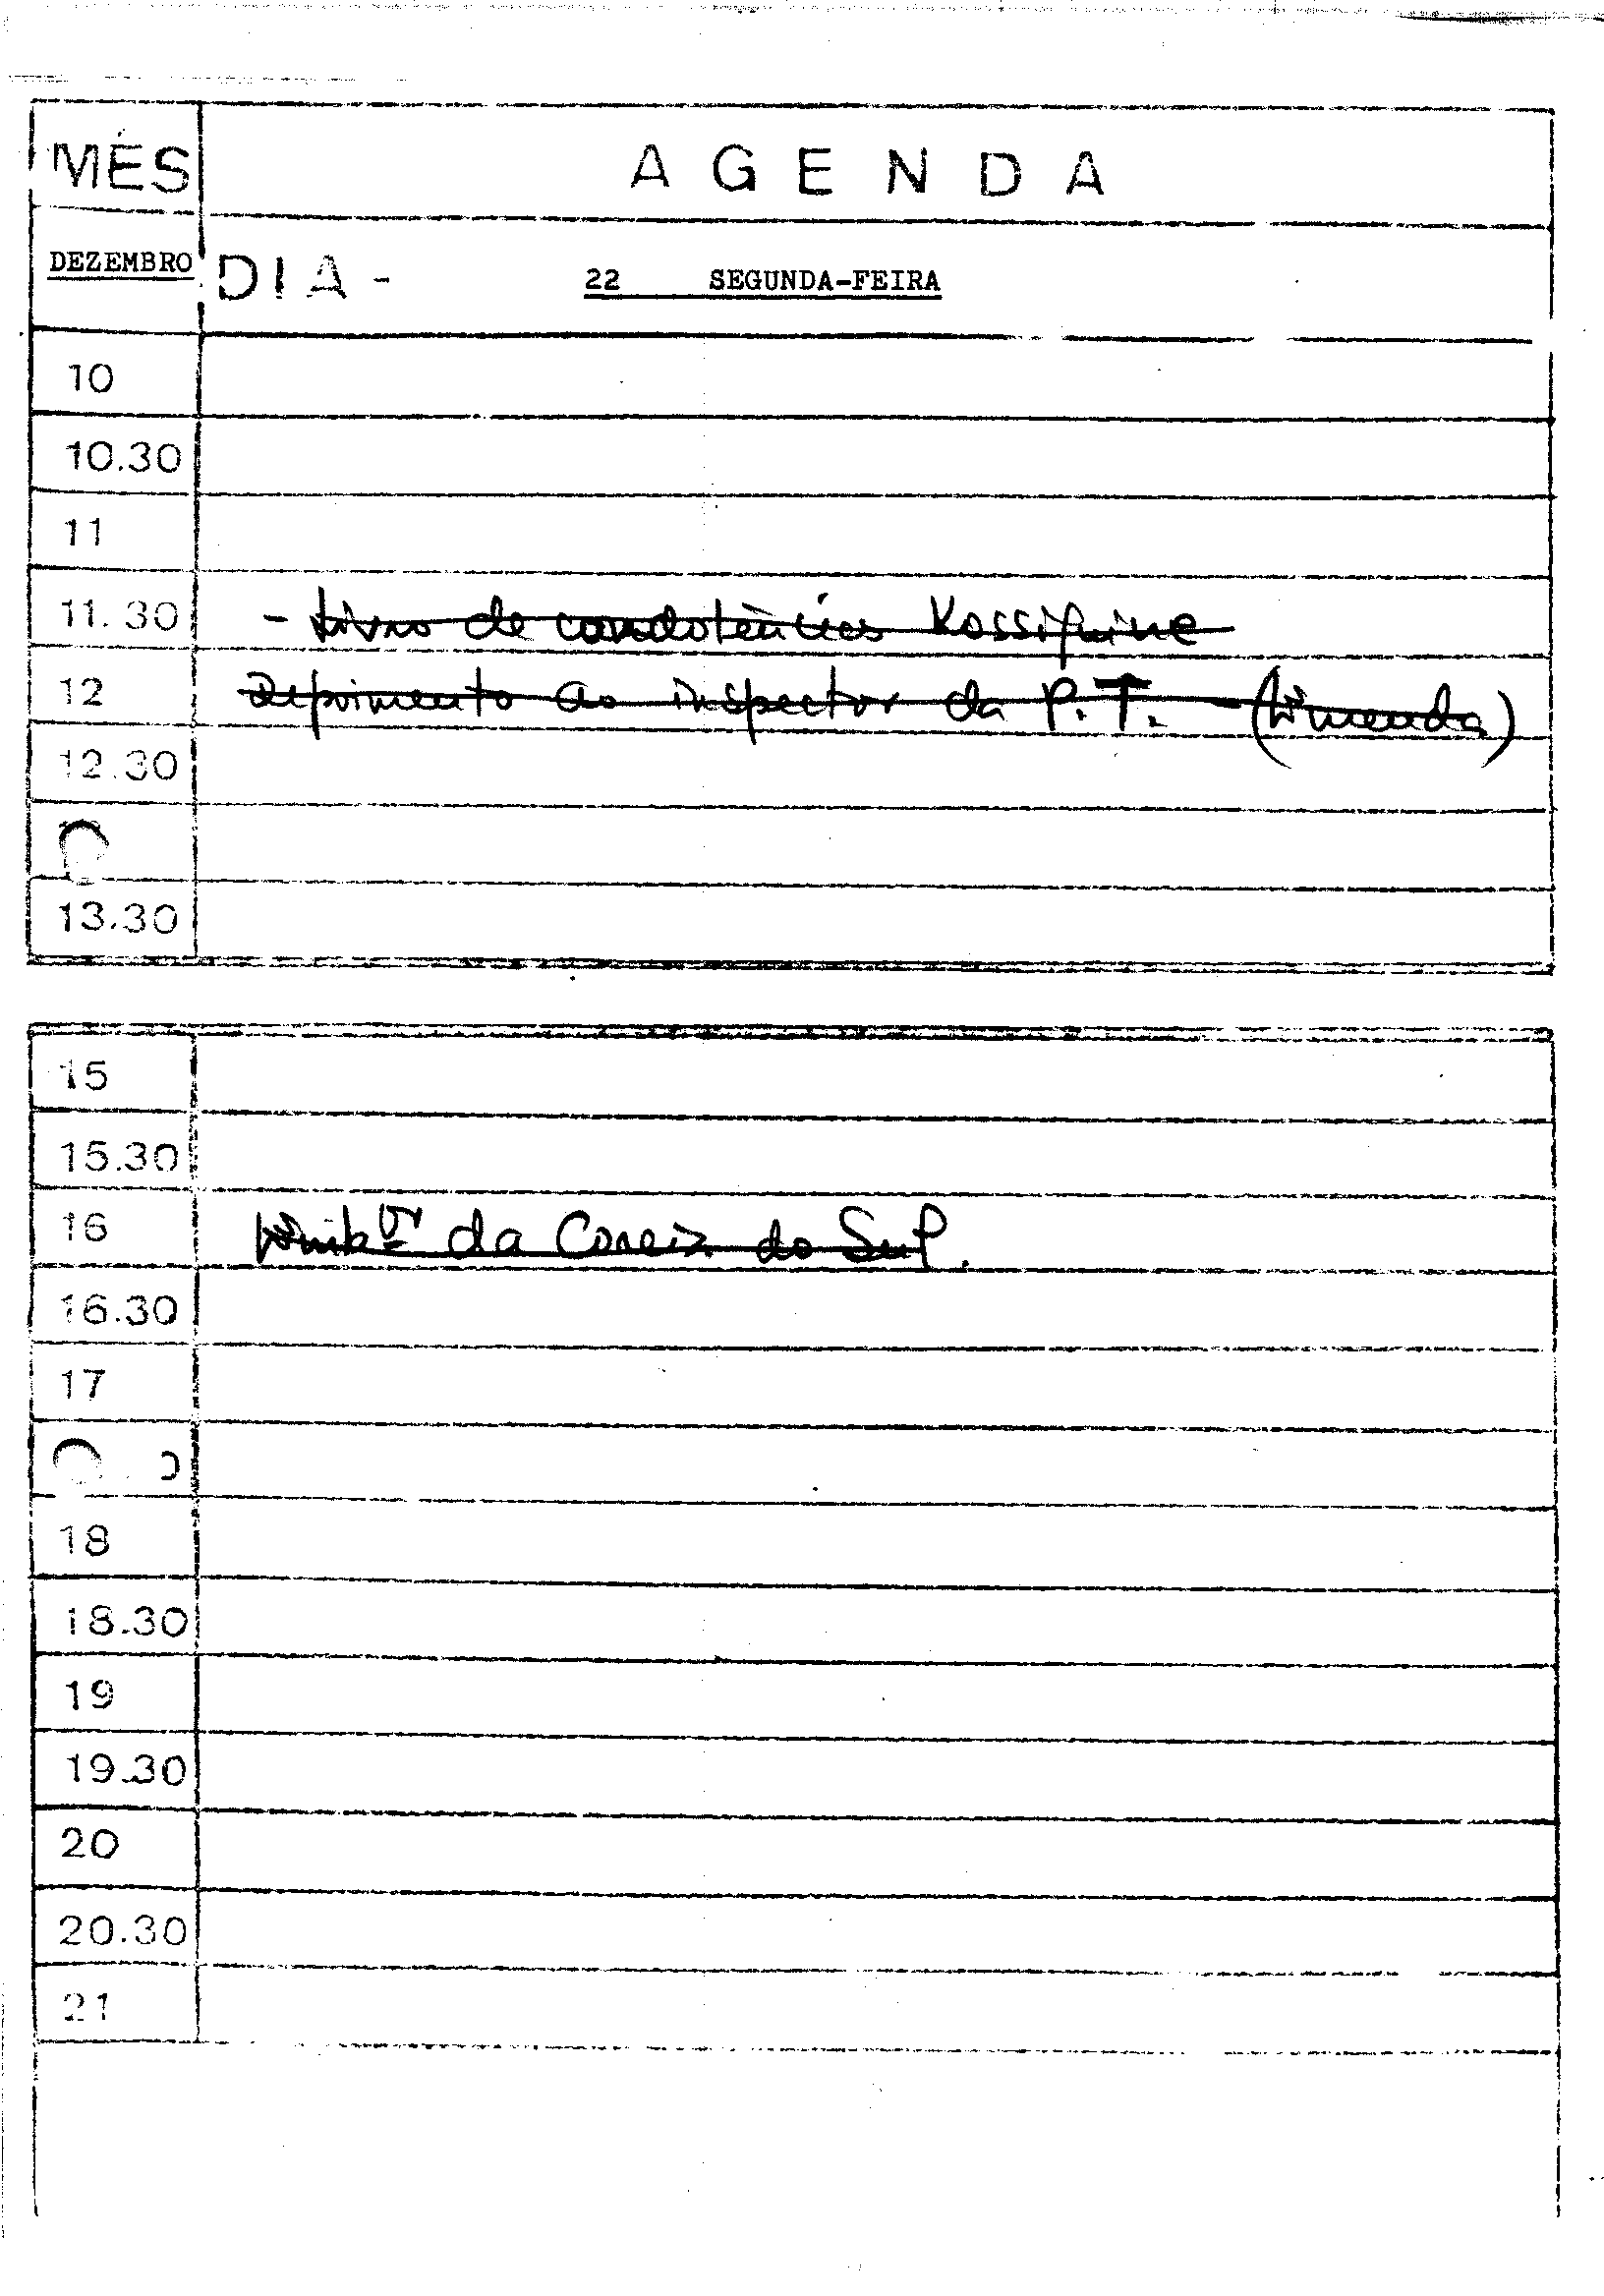 MÊS
A G E N D A
DEZEMBRO
DIA - 22 SEGUNDA-FEIRA
10
10.30
11
11.30 - Livro de condolências Kossiguine
12 Depoimento ao inspector da P. J. - (Limenda)
12.30
13.30
15
15.30
16 Embor da Coreia do Sul.
16.30
17
18
18.30
19
19.30
20
20.30
21